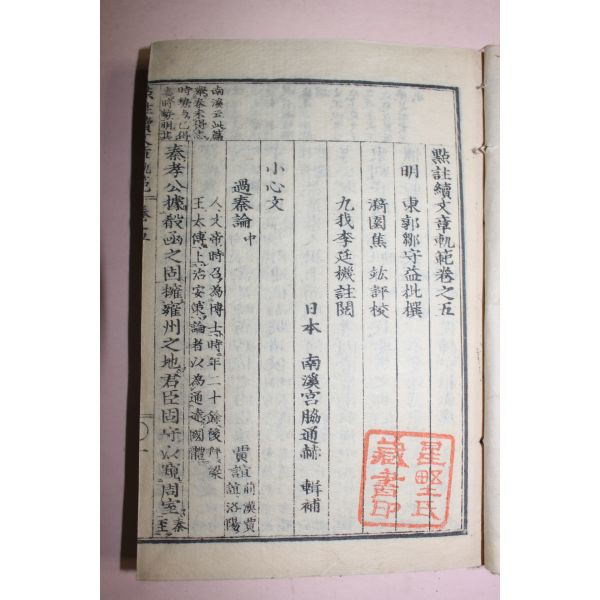 點註續文章軌範卷之五
明 東郭鄒守益批撰
漪園焦竑評校
九我李廷機註閱
日本 南溪宮脇通赫 輯補
小心文
過秦論中
賈誼 前漢賈誼洛陽
人文帝時召為博士時年二十餘後拜梁
王太傅上治安策論者以為通達國體
秦孝公據殽函之固擁雍州之地君臣固守以窺周室
南溪云此篇
點註續文章軌範 卷之五
星野氏藏書印